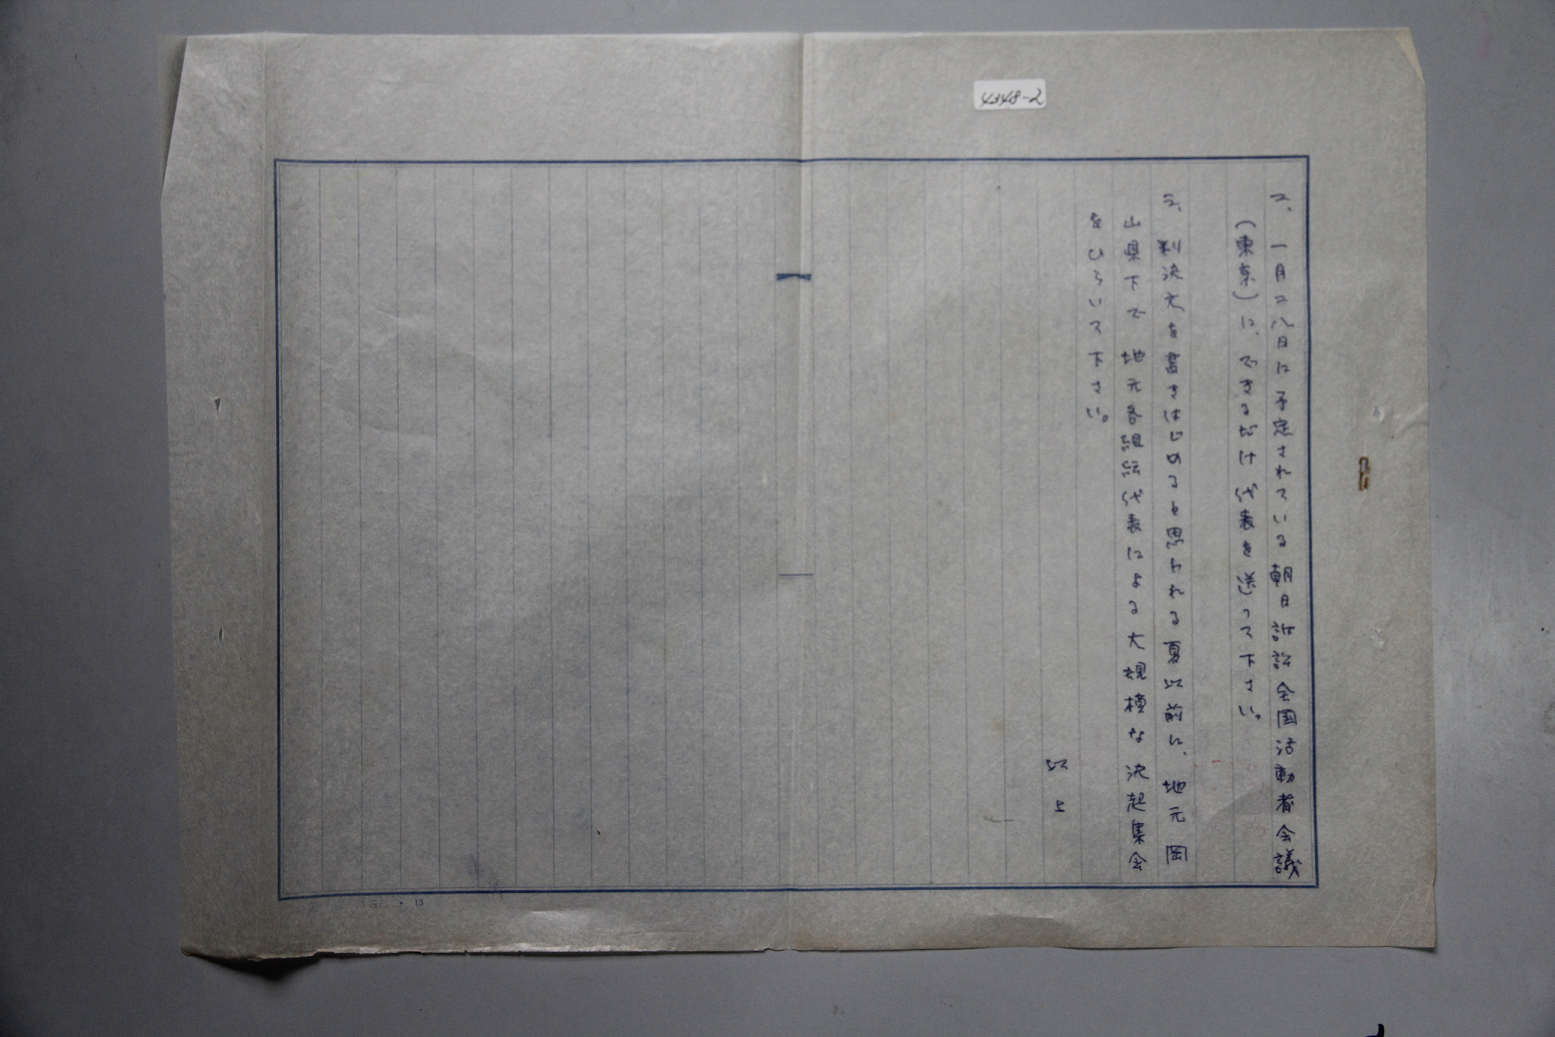 4348-2
2、一月二八日に予定されている朝日訴訟全国活動者会議
(東京)に、できるだけ代表を送って下さい。
3、判決文を書きはじめると思われる夏以前に、地元岡
山県下で地元各組織代表による大規模な決起集会
をひらいて下さい。
以上